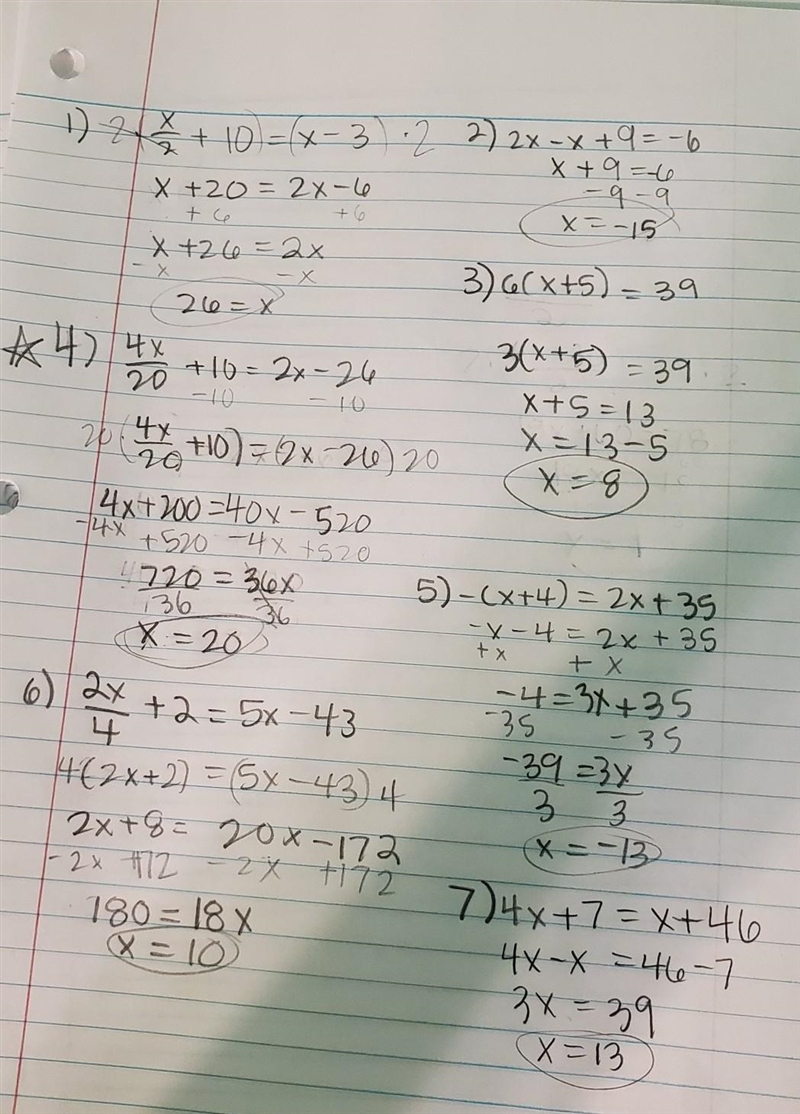 1) 2(x/2 + 10) = (x - 3) · 2
x + 20 = 2x - 6
+6 +6
x + 26 = 2x
-x -x
26 = x
2) 2x - x + 9 = -6
x + 9 = -6
-9 -9
x = -15
3) 6(x+5) = 39
3(x+5) = 39
x + 5 = 13
x = 13 - 5
x = 8
☆ 4) 4x/20 + 10 = 2x - 26
-10 -10
20(4x/20 + 10) = (2x - 26)20
4x + 200 = 40x - 520
-4x +520 -4x +520
720/36 = 36x/36
x = 20
5) -(x+4) = 2x + 35
-x - 4 = 2x + 35
+x +x
-4 = 3x + 35
-35 -35
-39/3 = 3x/3
x = -13
6) 2x/4 + 2 = 5x - 43
4(2x+2) = (5x - 43)4
2x + 8 = 20x - 172
-2x +172 -2x +172
180 = 18x
x = 10
7) 4x + 7 = x + 46
4x - x = 46 - 7
3x = 39
x = 13